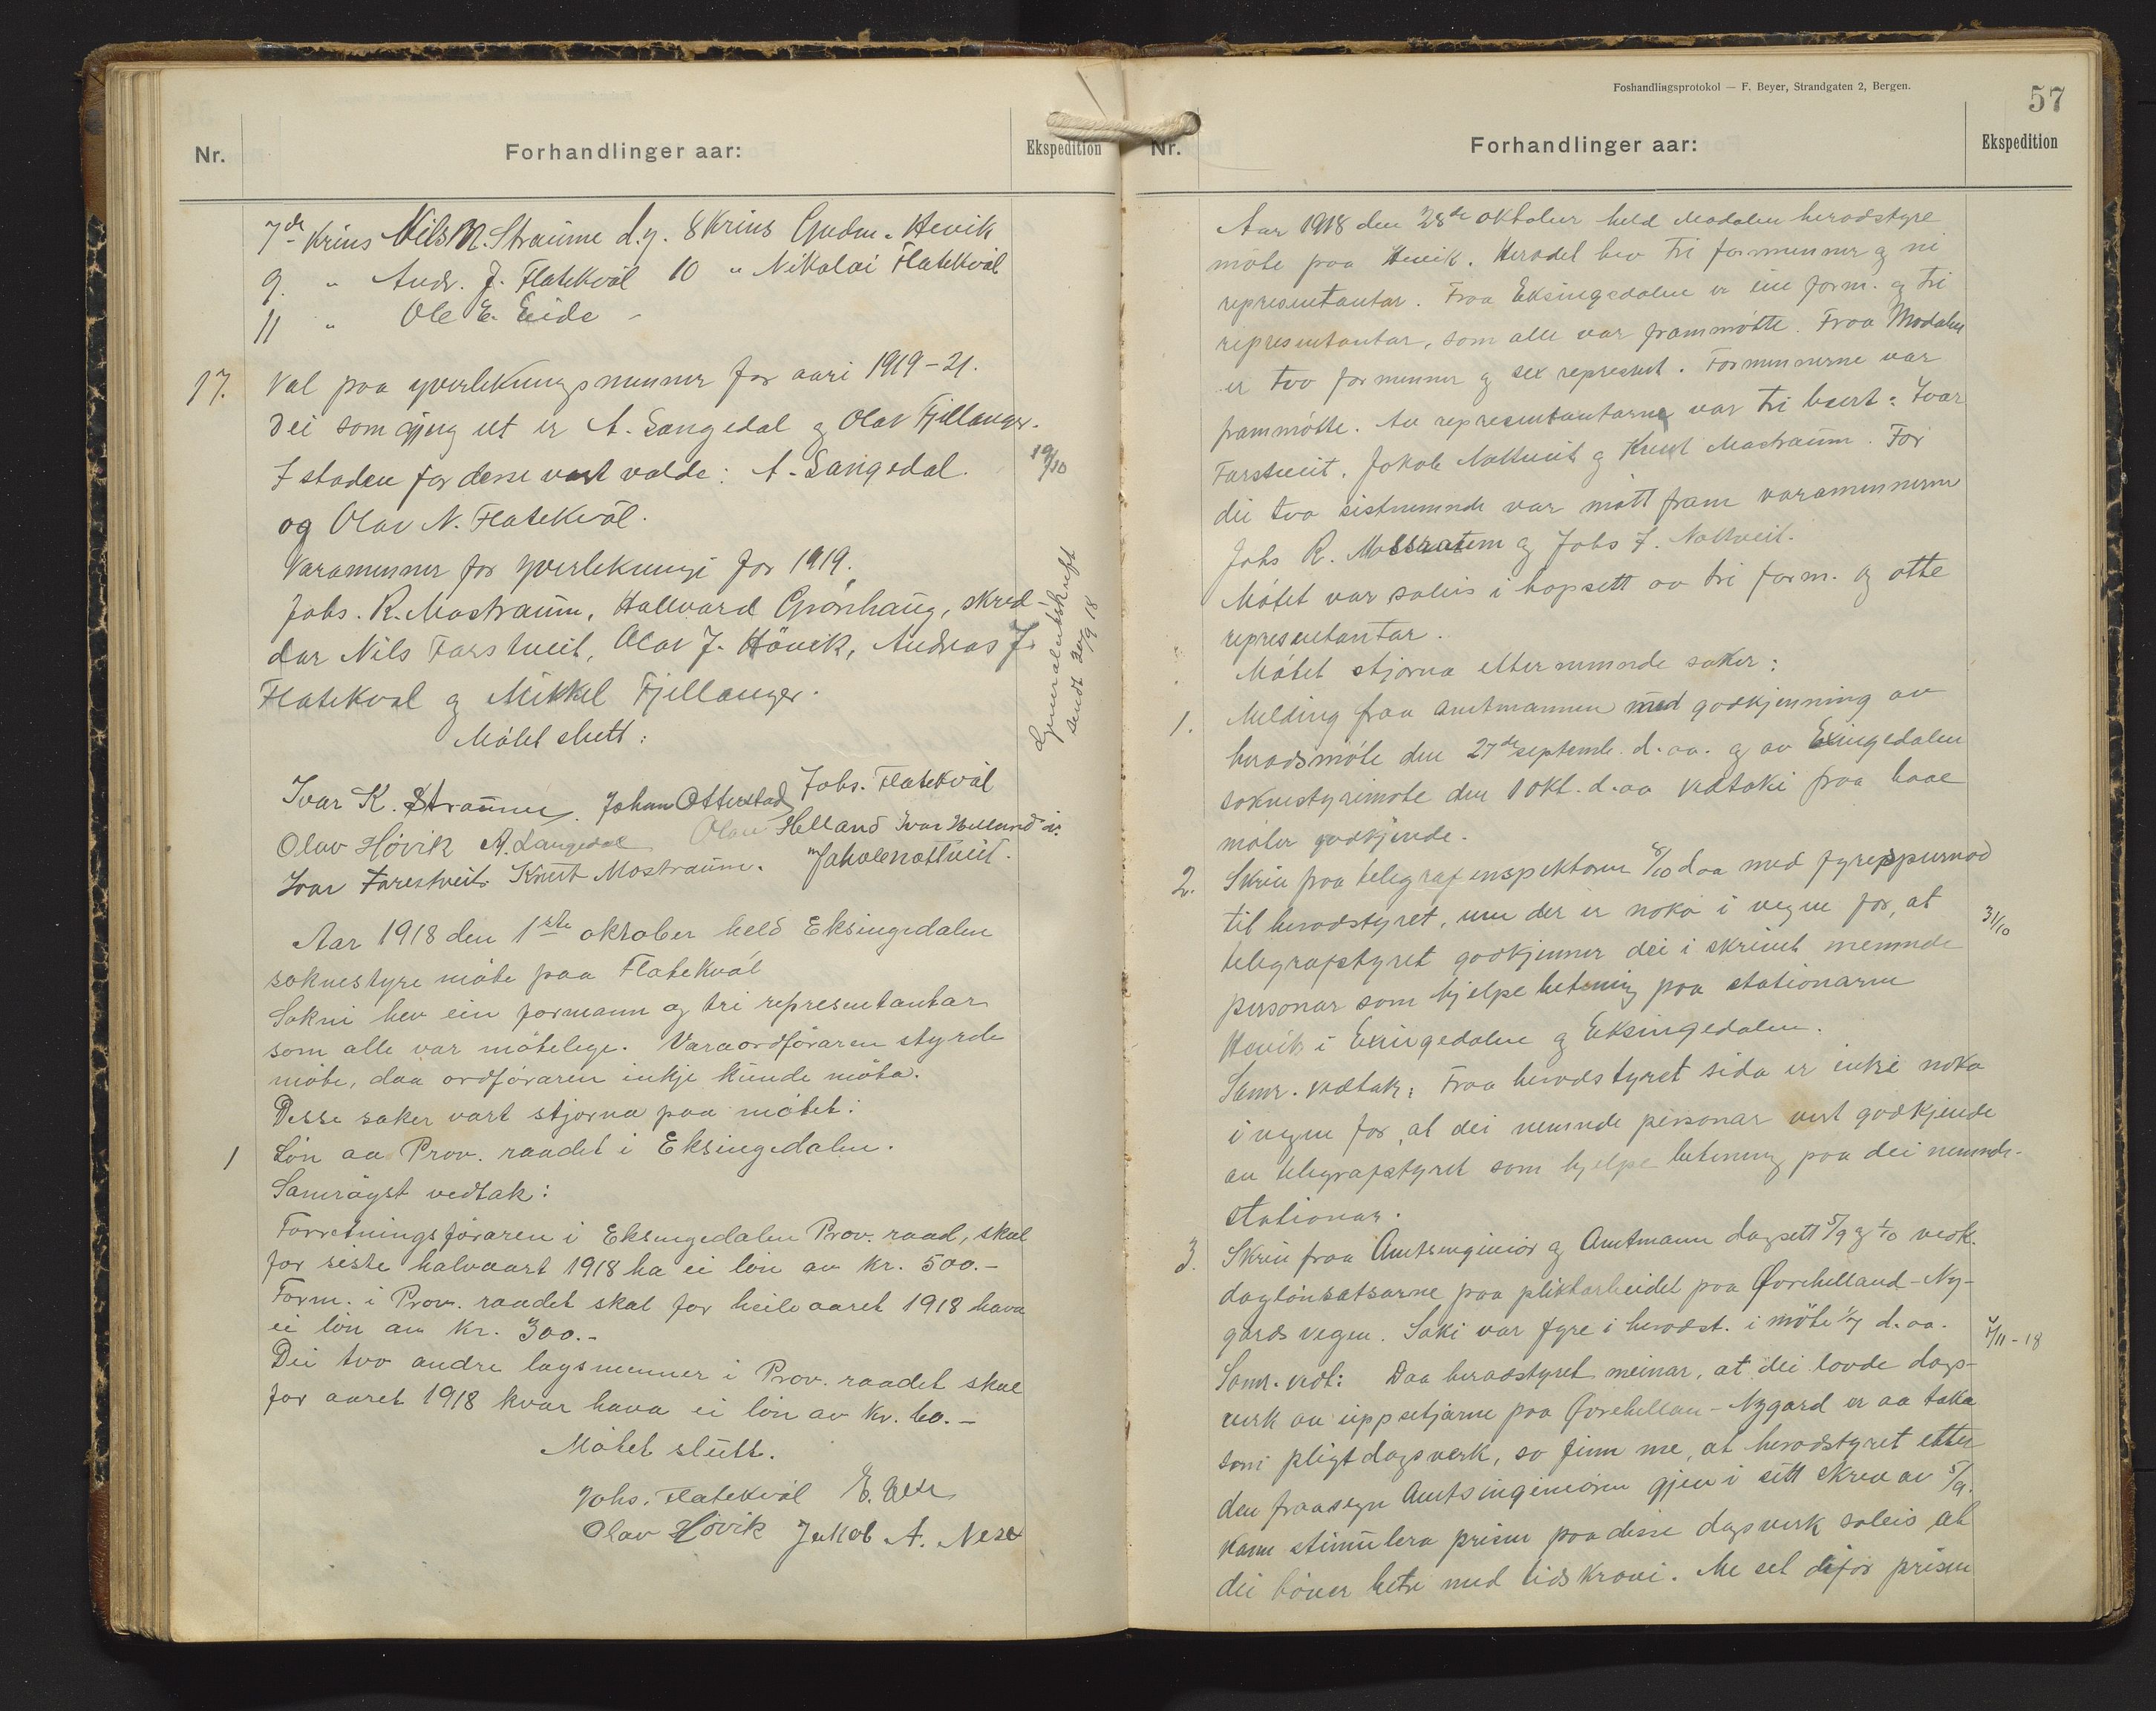 Nr.
Forhandlinger aar:
Ekspedition
7de Krins Nils N. Straume d.y. 8 Krins Gudm. Hevik
9. " Andr. J. Flatekvål 10 " Nikolai Flatekvål
11 " Ole E. Eide -
17. Val paa yverlikningsmenner for aari 1919-21.
Dei som gjeng ut er A. Langedal og Olav Fjellanger.
I staden for desse vart valde: A. Langedal.
19/10
og Olav N. Flatekvål.
Varamenner for yverlikningi for 1919.
Johs. R. Mostraum, Hallvard Grønhaug, skred-
dar Nils Farstveit, Olav J. Hövik, Andreas J.
Flatekval og Mikkel Fjellanger.
Mötet slutt:
Generalutskrift
sendt 20/9 18
Ivar K. Straume. Johan Otterstad Johs. Flatekvål
Olav Hövik A. Langedal Olav Helland Ivar Helland
Ivar Farestveit. Knut Mostraum. Jakob Nottveit.
Aar 1918 den 1ste oktober held Eksingedalen
soknestyre möte paa Flatekvål
Sokni hev ein formann og tri representantar
som alle var mötelege. Varaordföraren styrde
möte, daa ordföraren inkje kunde möta.
Desse saker vart stjorna paa mötet:
1 Lön aa Prov. raadet i Eksingedalen.
Samröyst vedtak:
Forretningsföraren i Eksingedalen Prov. raad, skal
for siste halvaart 1918 ha ei lön av kr. 500.-
Form. i Prov. raadet skal for heile aaret 1918 hava
ei lön av kr. 300.-
Dei tvo andre lagsmenner i Prov. raadet skal
for aaret 1918 kvar hava ei lön av kr. 60.-
Mötet slutt.
Johs. Flatekvål E. Eide
Olav Hövik Jakob A. Nese
Foshandlingsprotokol — F. Beyer, Strandgaten 2, Bergen.
57
Nr.
Forhandlinger aar:
Ekspedition
Aar 1918 den 28de oktober held Modalen heradstyre
möte paa Hevik. Heradet hev tri formenner og ni
representantar. Fraa Eksingedalen er ein form. og tri
representantar, som alle var frammötte. Fraa Modalen
er tvo formenner og sex represent. Formennerne var
frammötte. Av representantarne var tri burt: Ivar
Farstveit, Jakob Nottveit og Knut Mostraum. For
dei tvo sistnemnde var mött fram varamennerne
Johs R. Mostraum og Johs J. Nottveit.
Mötet var soleis i hopsett av tri form. og otte
representantar.
Mötet stjorna etternemnde saker:
1. Melding fraa amtmannen med godkjenning av
heradsmöte den 27de septemb. d. aa. og av Exingedalen
soknestyrimöte den 1 okt. d. aa vedtaki paa baae
möter godkjende.
2. Skriv fraa telegrafinspektoren 8/10 d aa med fyrespurnad
til heradstyret, um der er noko i vegen for, at
31/10
telegrafstyret godkjenner dei i skrivet nemnde
personar som hjelpe betening paa stationarne
Hevik i Exingedalen og Eksingedalen.
Samr. vedtak: Fraa heradstyret sida er inkje noko
i vegen for, at dei nemnde personar vert godkjende
av telegrafstyret som hjelpe betening paa dei nemnde
stationar.
3. Skriv fraa Amtsingeniör og Amtmann dagsett 5/9 og 1/10 vedk.
daglönsatsarne paa pliktarbeidet paa Øvrehelland-Ny-
gards vegen. Saki var fyre i heradst. i möte 1/7 d. aa.
7/11-18
Samr. vedt: Daa heradstyret meinar, at dei lovde dags-
verk av uppsitjarne paa Øvrehellan-Nygard er aa taka
som pligtdagsverk, so finn me, at heradstyret etter
den fraasegn Amtsingeniören gjev i sitt skriv av 5/9.
kann stimulera prisen paa disse dagsverk soleis at
dei höver betre med tidskravi. Me set difor prisen